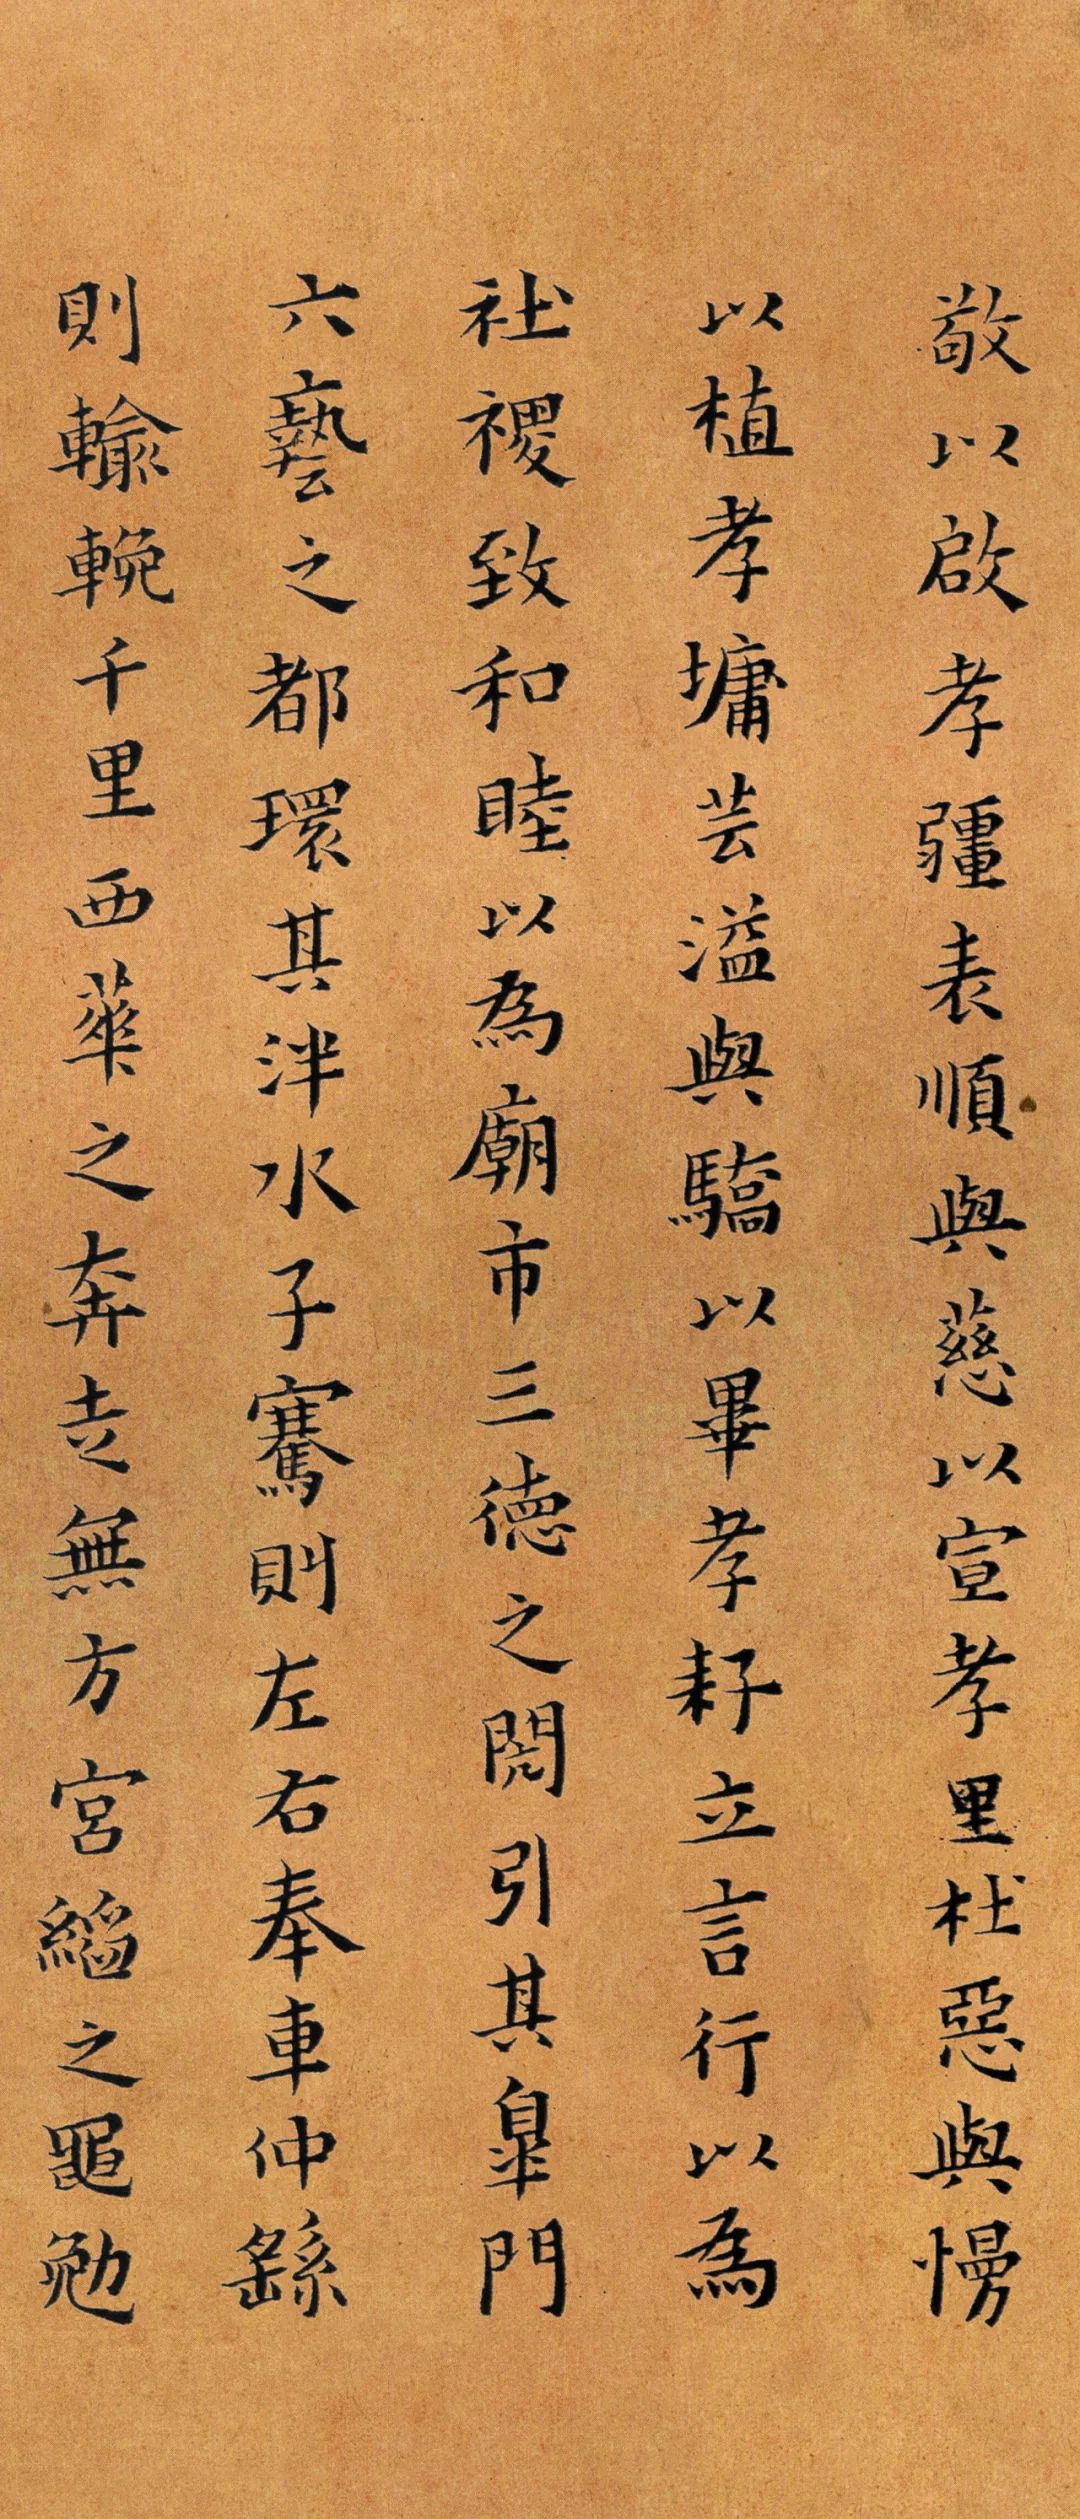 敬以啟孝疆表順與慈以宣孝里杜惡與慢
以植孝墉芸溢與驕以畢孝耔立言行以為
社稷致和睦以為廟市三德之閎引其皐門
六藝之都環其泮水子騫則左右奉車仲繇
則輸輓千里西華之奔走無方宮縚之黽勉